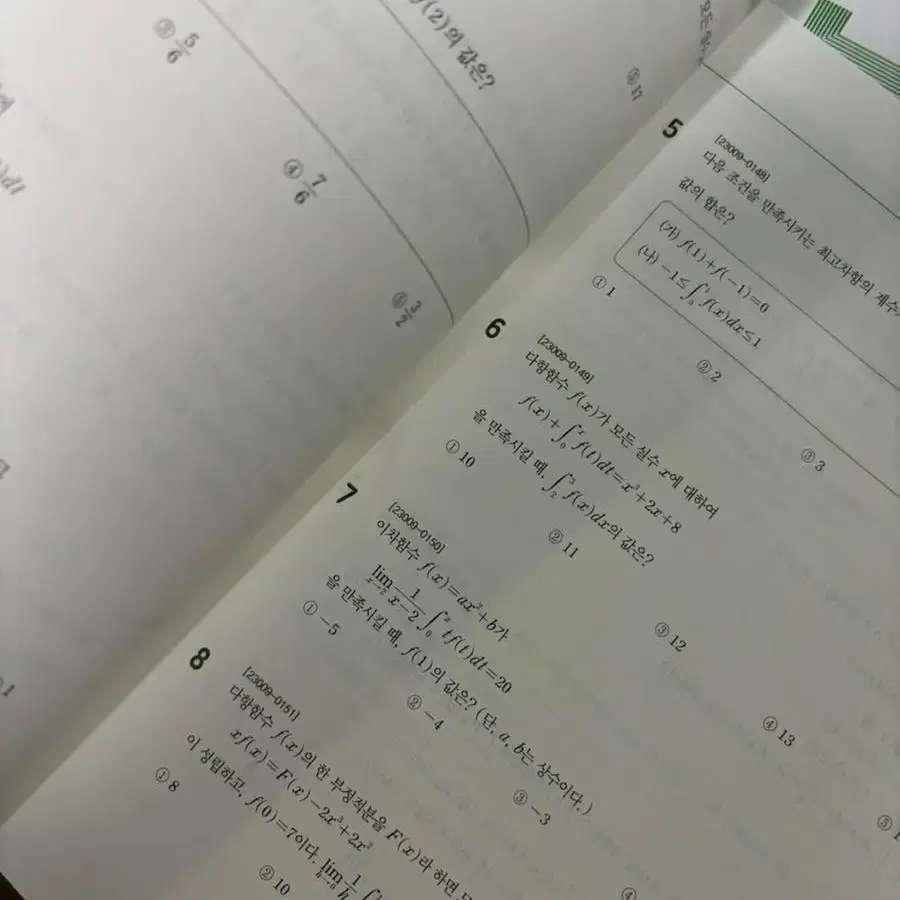 ③ 5/6
④ 7/6
⑤ 3/2
f(2)의 값은?
⑤ 17
5
[23009-0148]
다음 조건을 만족시키는 최고차항의 계수
값의 합은?
(가) f(1)+f(-1)=0
(나) -1≤∫₀¹ f(x)dx≤1
① 1
② 2
③ 3
6
[23009-0149]
다항함수 f(x)가 모든 실수 x에 대하여
f(x)+∫₀ˣ f(t)dt=x³+2x+8
을 만족시킬 때, ∫₂³ f(x)dx의 값은?
① 10
② 11
③ 12
④ 13
⑤ 1
7
[23009-0150]
이차함수 f(x)=ax²+b가
lim x→2 1/(x-2) ∫₀ˣ tf(t)dt=20
을 만족시킬 때, f(1)의 값은? (단, a, b는 상수이다.)
① -5
② -4
③ -3
④
8
[23009-0151]
다항함수 f(x)의 한 부정적분을 F(x)라 하면
xf(x)=F(x)-2x³+2x²
이 성립하고, f(0)=7이다. lim h→0 1/h ∫
① 8
② 10